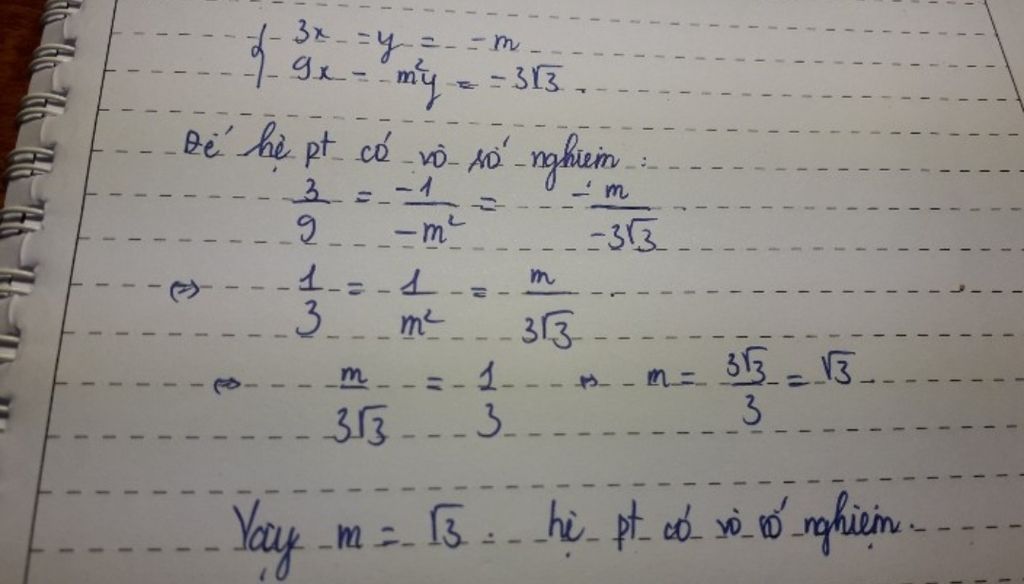 { 3x - y = -m
9x - m²y = -3√3.
Để hệ pt có vô số nghiệm :
3/9 = -1/-m² = -m/-3√3
⇔ 1/3 = 1/m² = m/3√3
⇔ m/3√3 = 1/3 ⇔ m = 3√3/3 = √3
Vậy m = √3. hệ pt có vô số nghiệm.